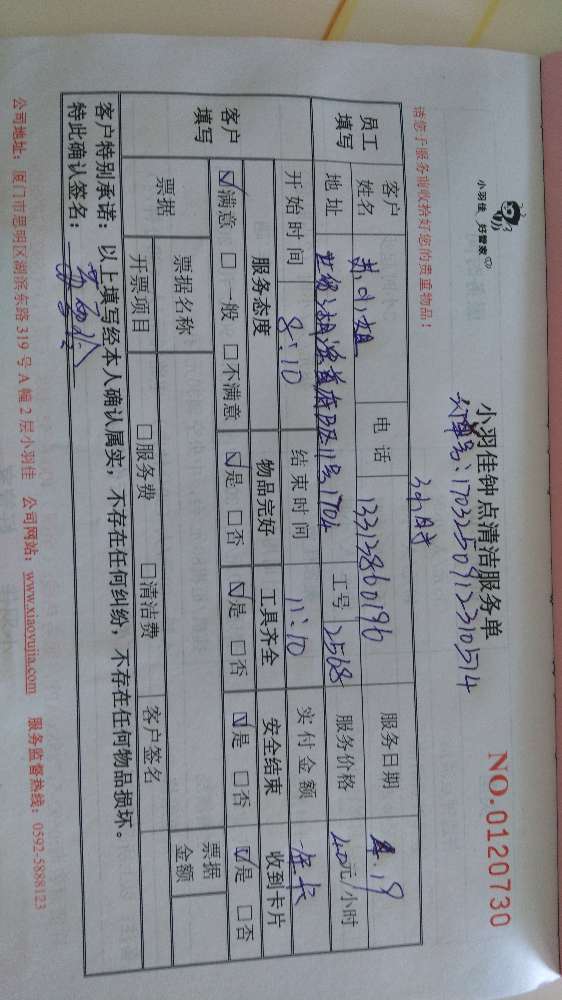 小羽佳 好管家
小羽佳钟点清洁服务单
NO.0120730
订单号：1703250912310514
请您于服务前收拾好您的贵重物品！
3小时
员工填写 客户姓名 苏小姐 电话 13313860196 服务日期 4.19
地址 湖滨首府B区11号1704 工号 2568 服务价格 40元/小时
客户填写 开始时间 8:10 结束时间 11:10 实付金额 年卡
服务态度 物品完好 工具齐全 安全结束 收到卡片
☑满意 □一般 □不满意 ☑是 □否 ☑是 □否 ☑是 □否 ☑是 □否
票据 票据名称 票据金额
开票项目 □服务费 □清洁费 客户签名
客户特别承诺：以上填写经本人确认属实，不存在任何纠纷，不存在任何物品损坏。
特此确认签名：
公司地址：厦门市思明区湖滨东路319号A幢2层小羽佳 公司网站：www.xiaoyujia.com 服务监督热线：0592-5888123